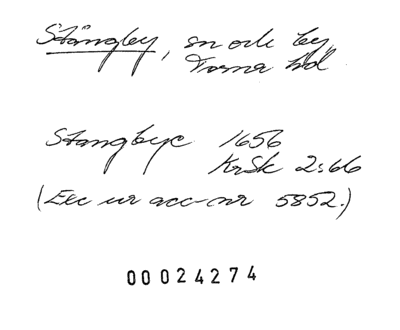 Stångby, sn och by,
Torna hd.
Stangbye 1656
KrSk 2:66
(Exc ur acc-nr 5852.)
00024274